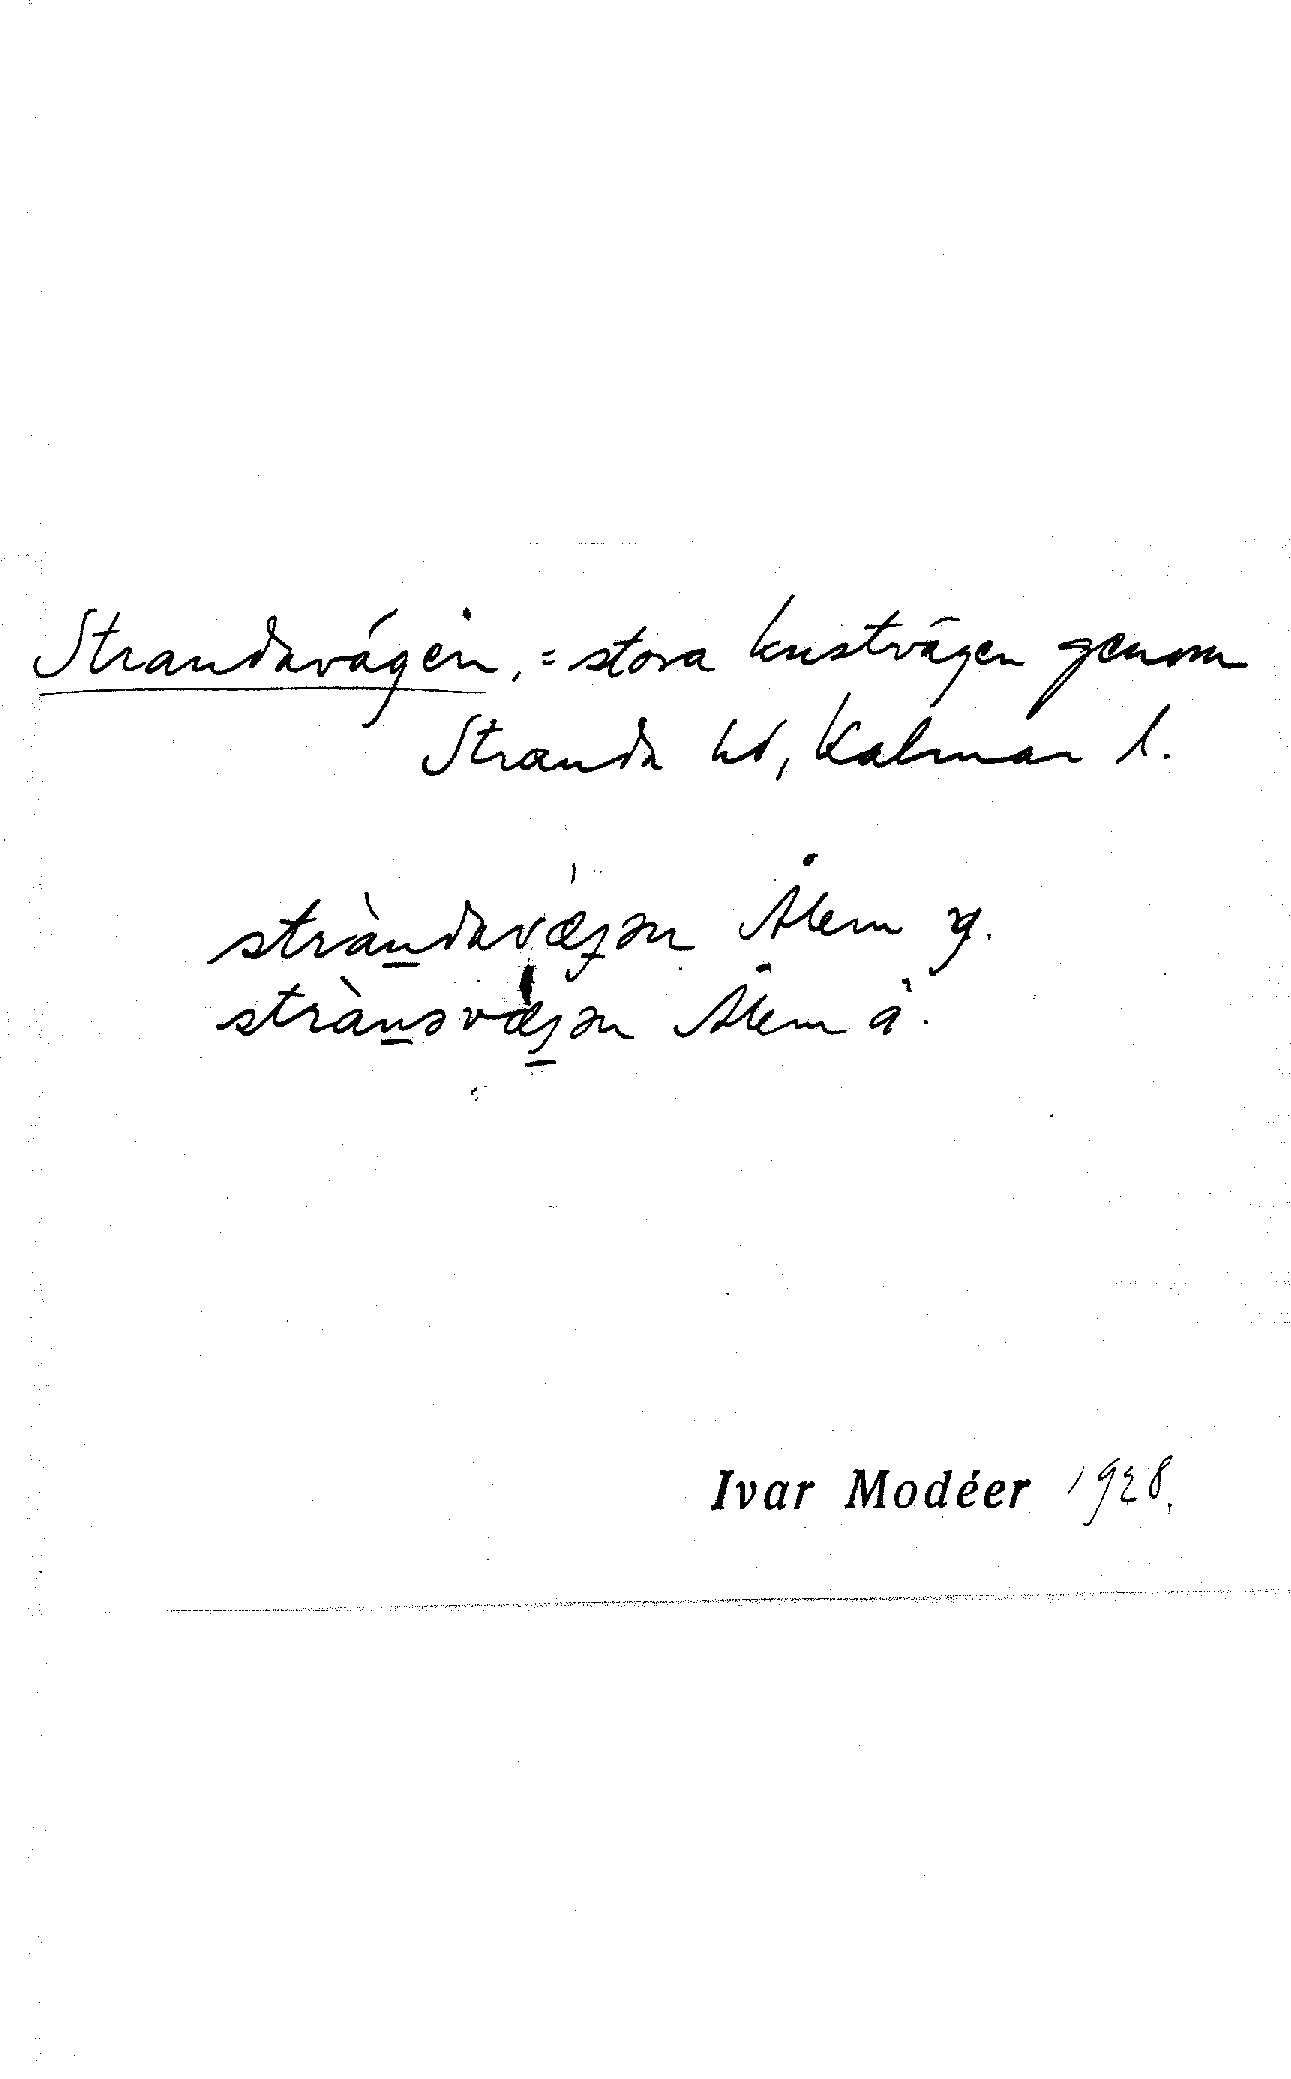 Strandavägen, = stora kustvägen genom
Stranda hd, Kalmar l.
stràn̲davæʒən Ålem y.
stràn̲əvæʒən Ålem ä.
Ivar Modéer 1928.